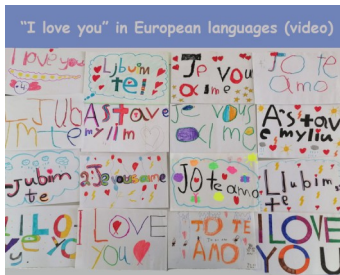 “I love you” in European languages (video)
I love you
Ljbuim
te!
Je vou
aime
JO te
amo
Astave
mylim
Je vous
aime
Astav
emyliu
jubim
te
Jo te amo
LJubim
te
I LOVE
you
JO TE
AMO
I LOVE
YOU